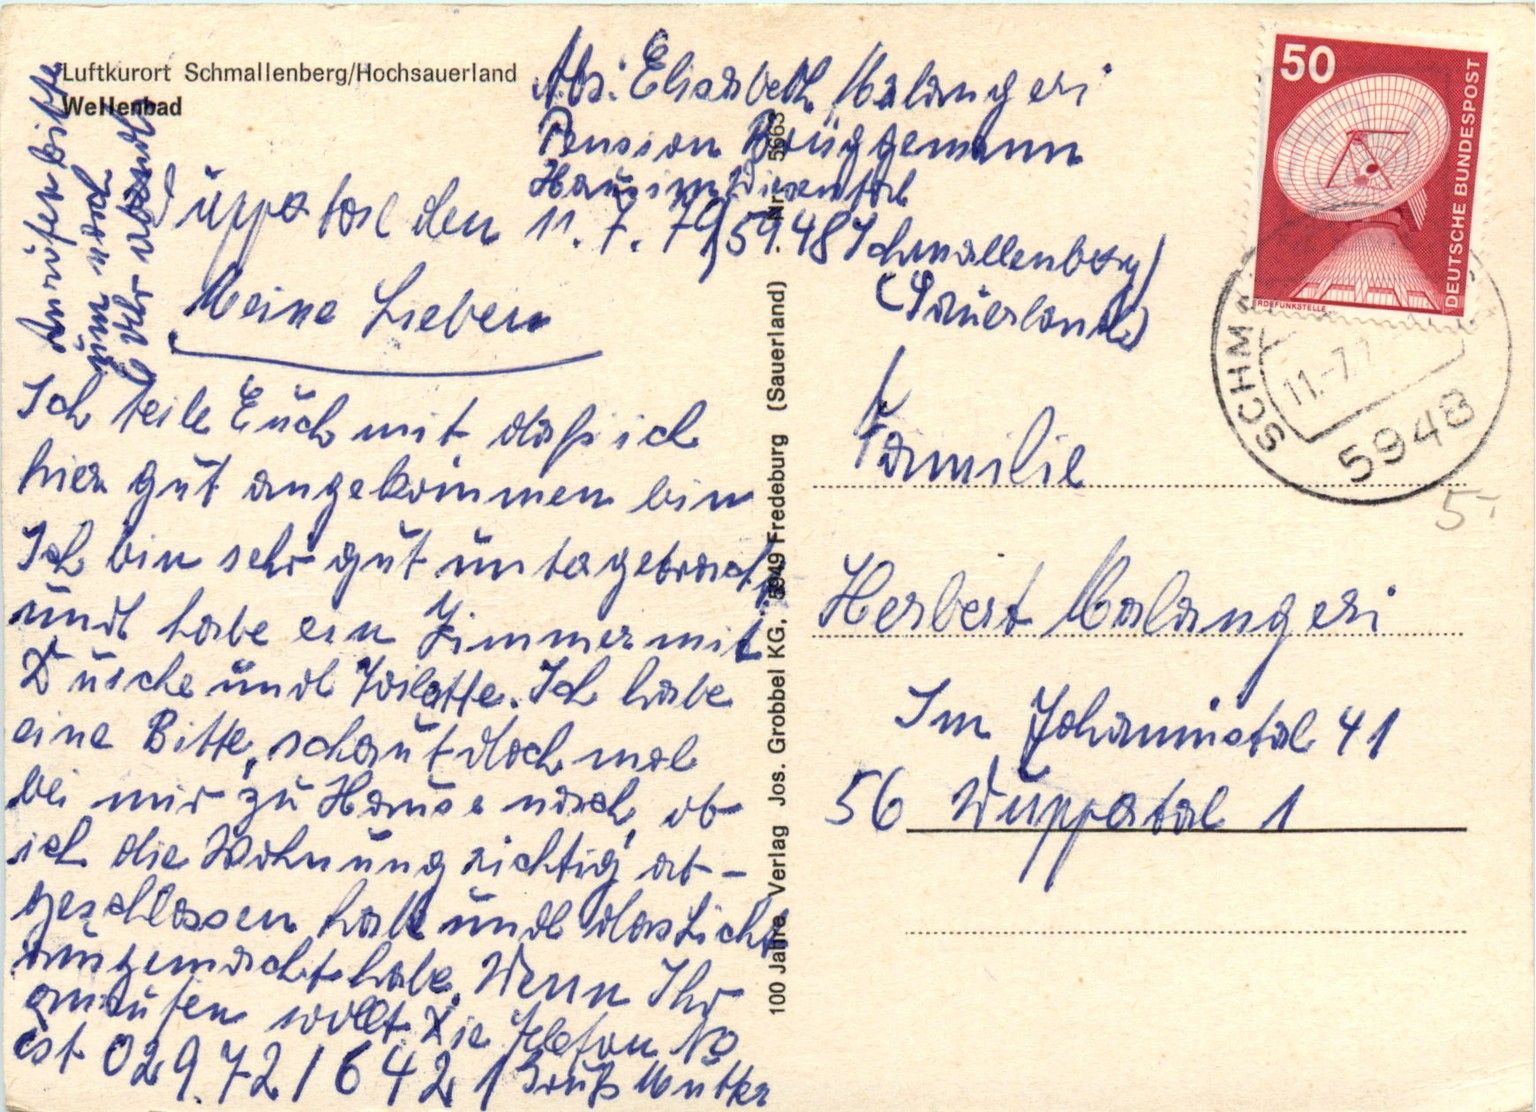 Luftkurort Schmallenberg/Hochsauerland
Wellenbad
Abs. Elisabeth Malangeri
Pension Brüggemann
Haus im Wiesental
5948 Schmallenberg
(Sauerland)
Wuppertal den 11.7.79
Meine Lieben
Ich teile Euch mit daß ich
hier gut angekommen bin
Ich bin sehr gut untergebracht
und habe ein Zimmer mit
Dusche und Toilette. Ich habe
eine Bitte, schaut doch mal
bei mir zu Hause nach, ob
ich die Wohnung richtig ab-
geschlossen hab und das Licht
ausgemacht habe. Wenn Ihr
anrufen wollt Die Telefon No
ist 02972/6421 Gruß Mutter
Anrufen bitte
um nach
6 Uhr abends
100 Jahre Verlag Jos. Grobbel KG, 5949 Fredeburg (Sauerland) Nr. 5663
50
DEUTSCHE BUNDESPOST
ERDEFUNKSTELLE
SCHM
11.-7.7
5948
5.-
Familie
Herbert Malangeri
Im Johannistal 41
56 Wuppertal 1